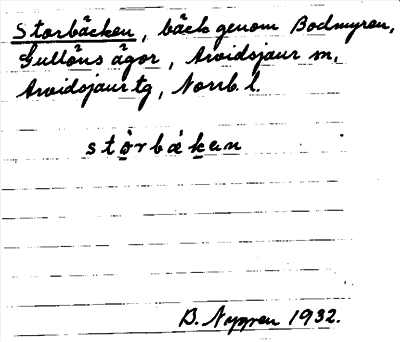 Storbäcken, bäck genom Bodmyren,
Gullöns ägor, Arvidsjaur sn,
Arvidsjaur tg, Norrb. l.
stòrbäkan
B. Nygren 1932.